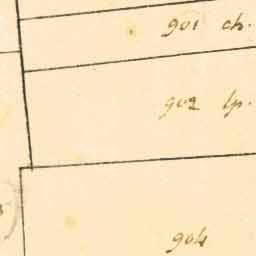 901 ch.
902 lp.
904